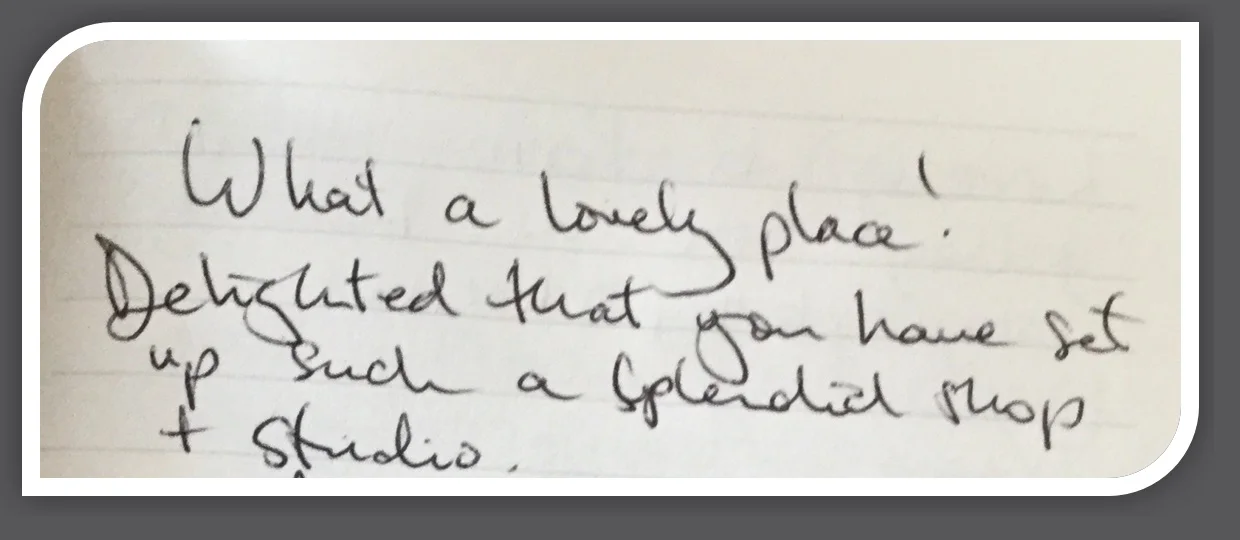 What a lovely place!
Delighted that you have set
up such a splendid shop
+ studio.